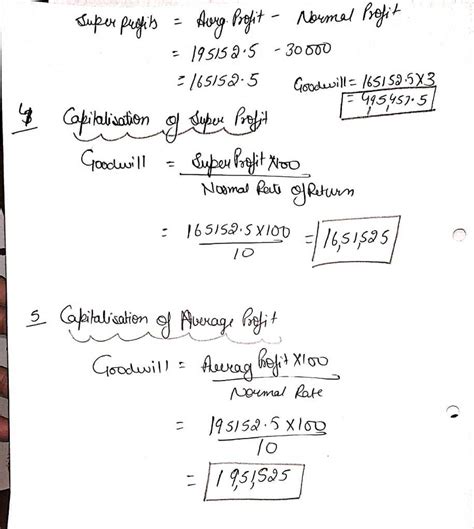 Super profits = Avrg. Profit - Normal Profit
= 195152.5 - 30000
= 165152.5 Goodwill = 165152.5 X 3
= 495,457.5
4 Capitalisation of Super Profit
Goodwill = Super Profit X 100
Normal Rate of Return
= 165152.5 X 100 = 16,51,525
10
5 Capitalisation of Average Profit
Goodwill = Averag Profit X 100
Normal Rate
= 195152.5 X 100
10
= 19,51,525